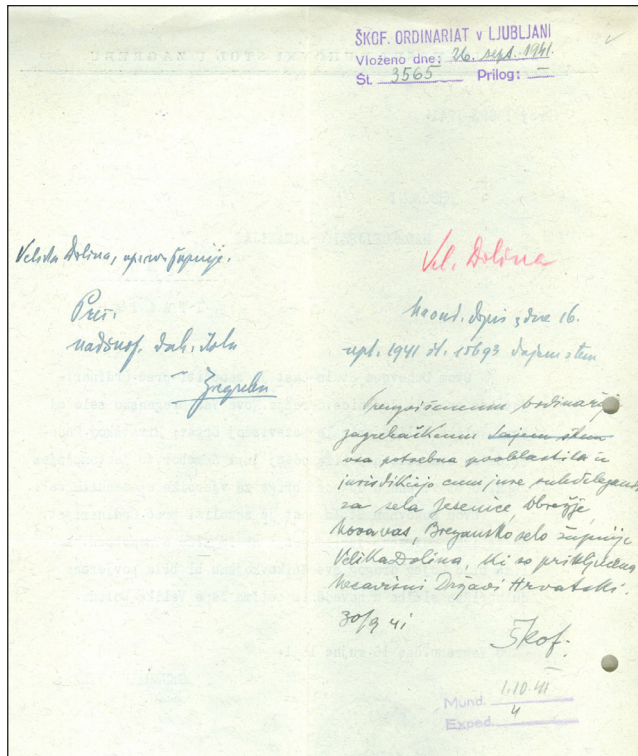 ŠKOF. ORDINARIAT v LJUBLJANI
Vloženo dne: 26. sept. 1941.
Št. 3565 Prilog: —
Velika Dolina, uprava župnije.
Vel. Dolina
Prei.
nadškof. duh. stolu
Zagreb
Na ond. dopis z dne 16.
sept. 1941 št. 15693 dajem s tem
ordinariju
zagrebačkemu dajem s tem
vsa potrebna pooblastila in
jurisdikcijo cum jure subdelegandi
za sela Jesenice, Obrežje,
Nova vas, Bregansko selo župnije
Velika Dolina, ki so priključena
Nezavisni Državi Hrvatski.
30/9 41
Škof.
Mund. 1.10.41
Exped. 4